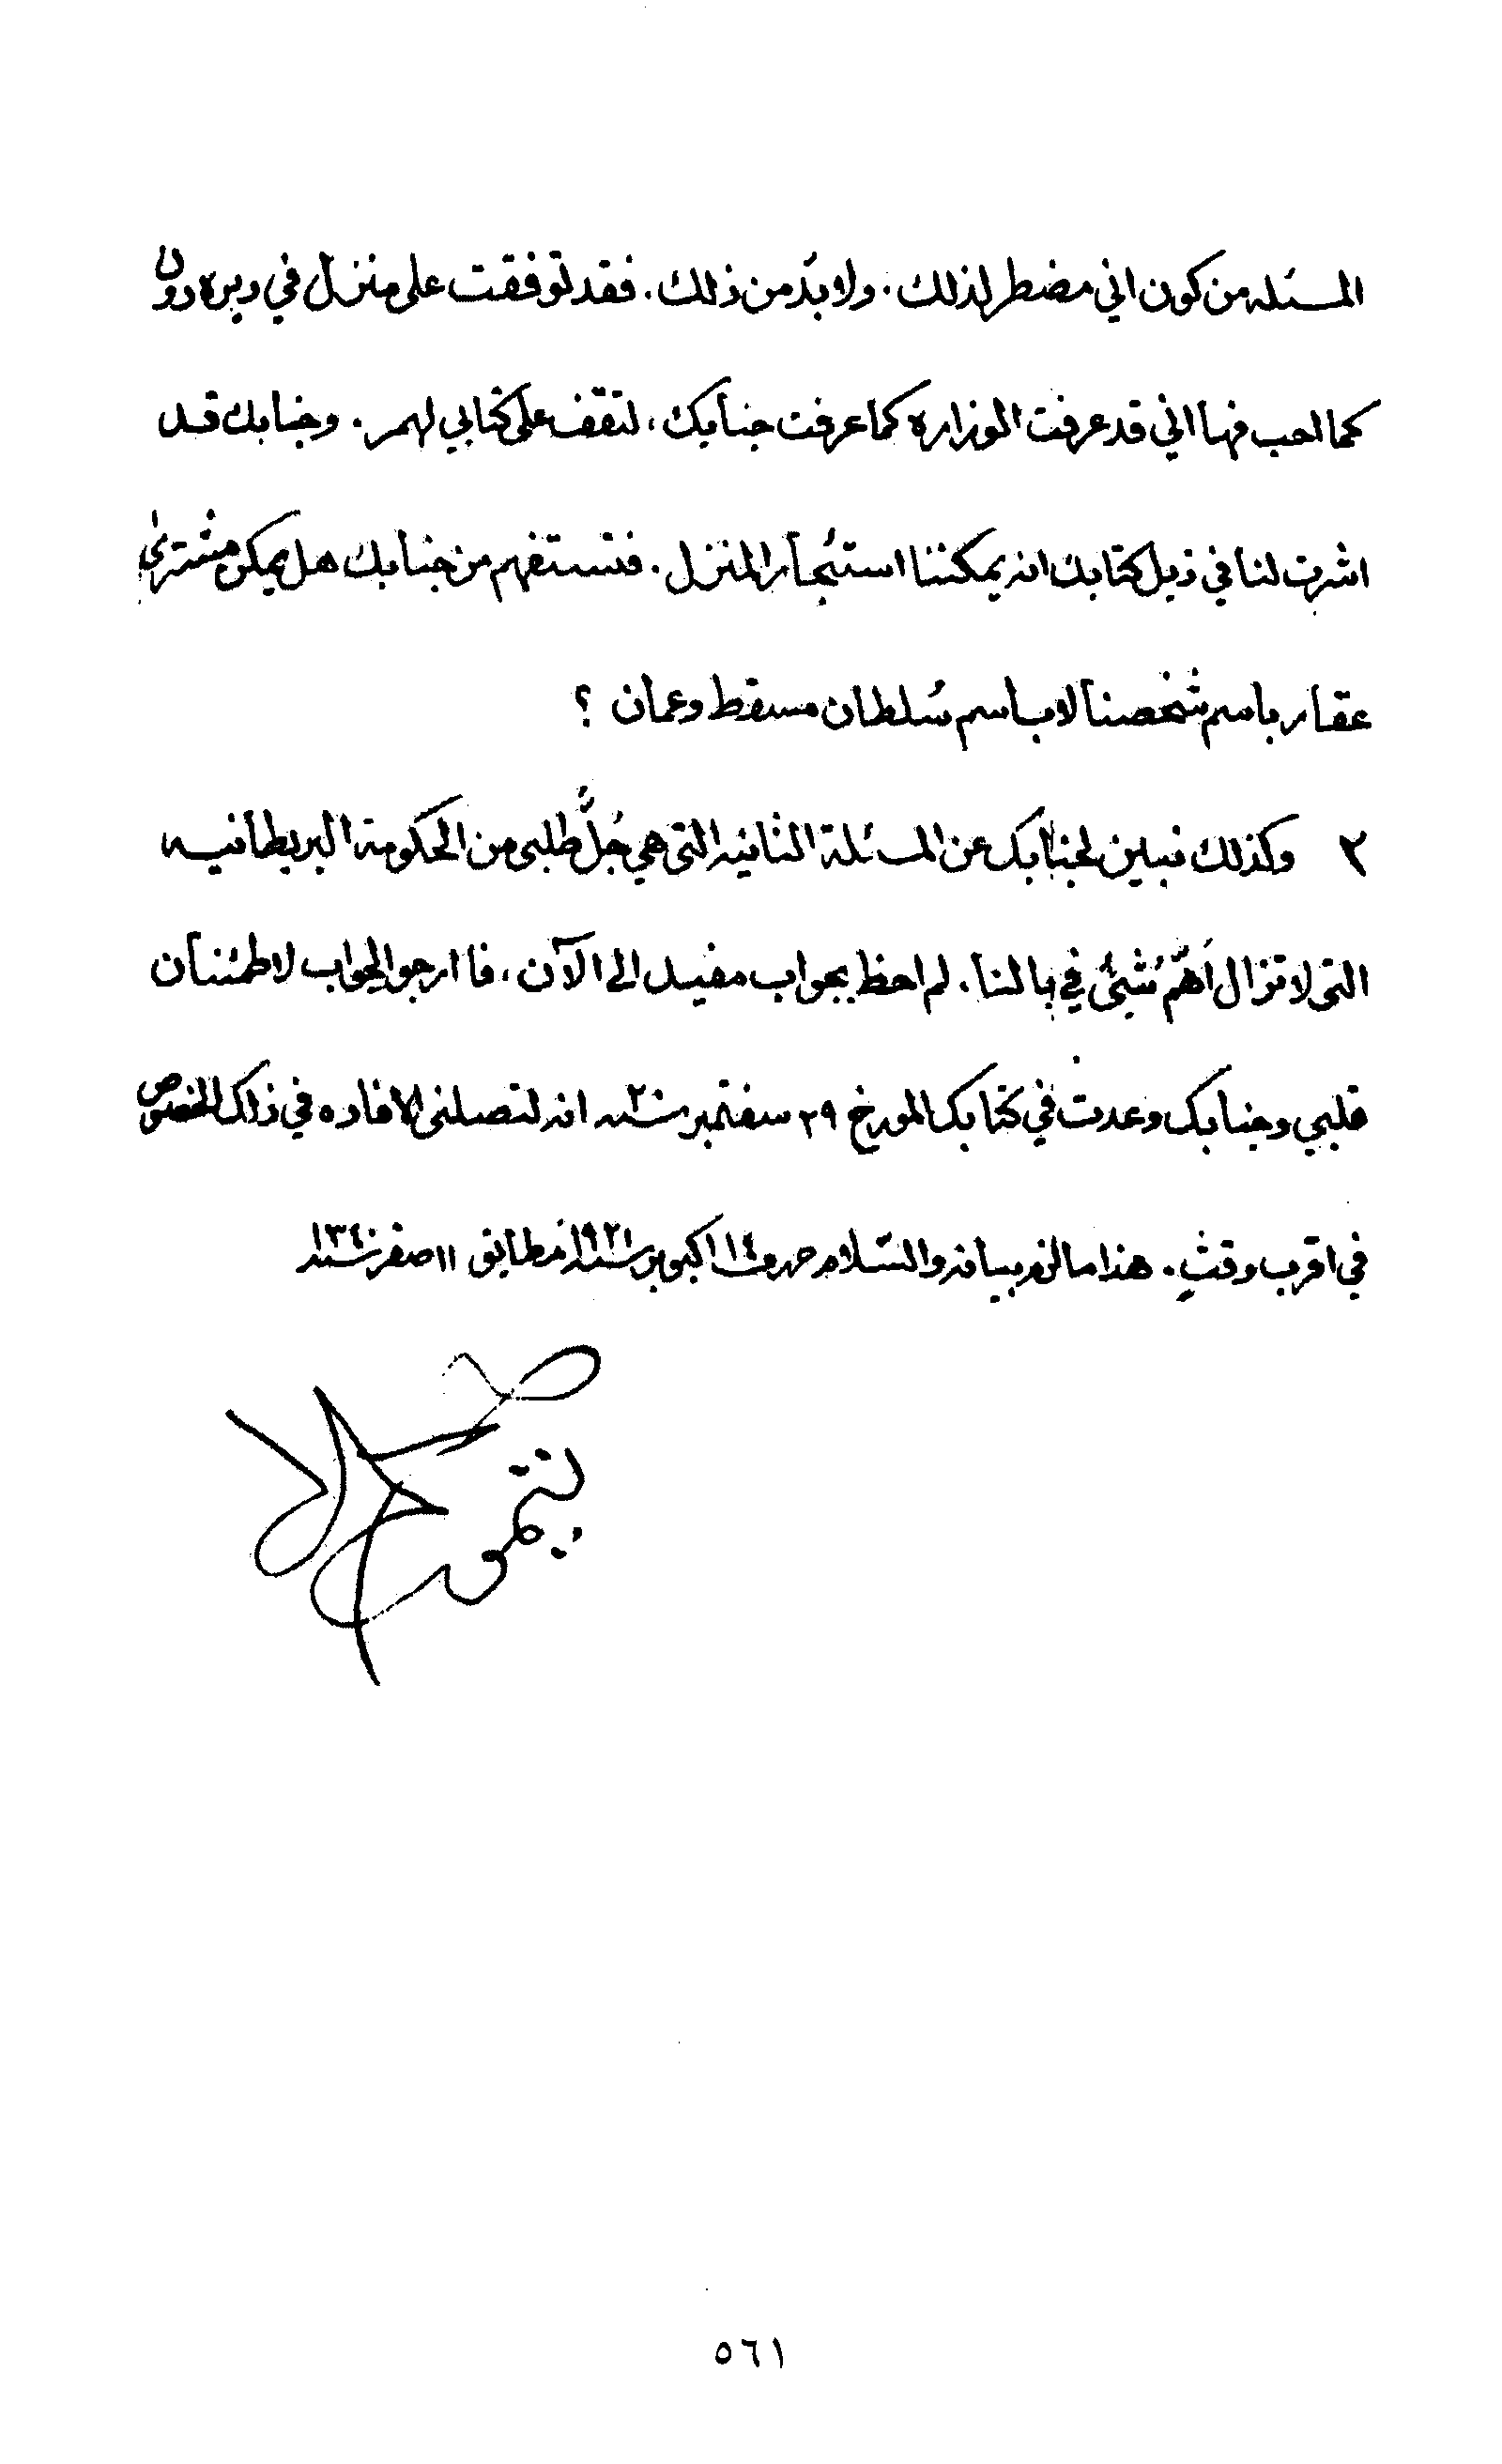 المسئله من كون اني مضطر لذلك . ولا بدّ من ذلك . فقد توفقت على منزل في ديره دون
كما احب فها اني قد عرفت الوزاره كما عرفت جنابك ، لتقف على كتابي لهم . وجنابك قد
اشرت لنا في ذيل كتابك انه يمكننا استئجار المنزل . فنستفهم من جنابك هل يمكن مشترىٰ
عقار باسم شخصنا لا باسم سُلطان مسقط وعمان ؟
٢ وكذلك نبين لجنابك عن المسئلة الثانيه التي هي جُلُّ طلبي من الحكومة البريطانيه
التي لا تزال اَهمّ شيئ في بالنا . لم احظ بجواب مفيد الى الآن ، فا ارجو الجواب لاطمئنان
قلبي وجنابك وعدت في كتابك المورخ ٢٩ سفتمبر سنه انه لتصلني الافاده في ذلك الخصوص
في اقرب وقتٍ . هذا ما لزم بيانه والسّلام حرر ١٤ اكبوبر سنة ١٩٢١ مطابق ١١ صفر سنه ١٣٤٠
تيمور
٥٦١